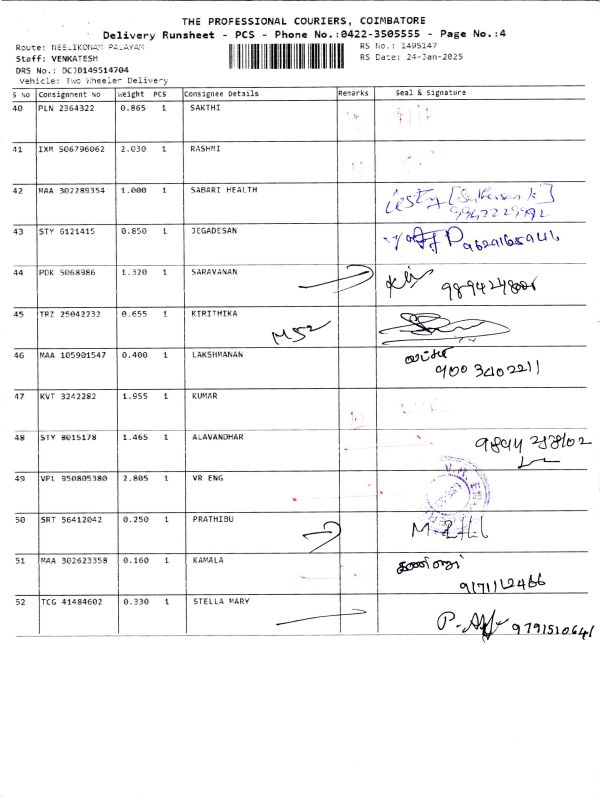 THE PROFESSIONAL COURIERS, COIMBATORE
Delivery Runsheet - PCS - Phone No.:0422-3505555 - Page No.:4
Route: NEELIKONAM PALAYAM
RS No.: 1495147
Staff: VENKATESH
RS Date: 24-Jan-2025
DRS No.: DCJB149514704
Vehicle: Two Wheeler Delivery
S No Consignment No Weight PCS Consignee Details Remarks Seal & Signature
40 PLN 2364322 0.865 1 SAKTHI
41 IXM 506796062 2.030 1 RASHMI
42 MAA 302289354 1.000 1 SABARI HEALTH
43 STY 6121415 0.850 1 JEGADESAN
44 PDK 5068986 1.320 1 SARAVANAN
45 TRZ 25042232 0.655 1 KIRITHIKA
46 MAA 105901547 0.400 1 LAKSHMANAN
9003402211
47 KVT 3242282 1.955 1 KUMAR
48 STY 8015178 1.465 1 ALAVANDHAR
49 VPL 950805380 2.805 1 VR ENG
50 SRT 56412042 0.250 1 PRATHIBU
51 MAA 302623358 0.160 1 KAMALA
9171112466
52 TCG 41484602 0.330 1 STELLA MARY
9791510641